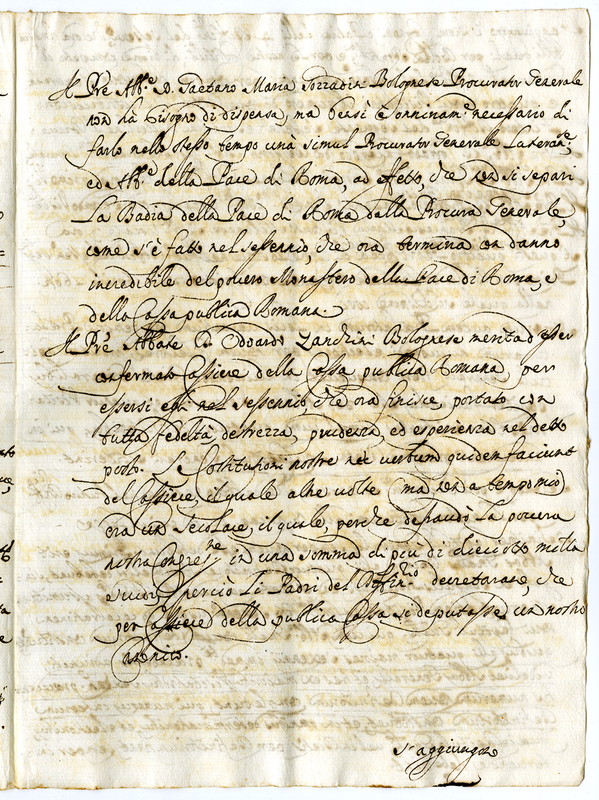 Il Pre Abb.e D. Gaetano Maria Tozzadin Bolognese Procurator Generale
non hà bisogno di dispensa, ma bensì è onninam.e necessario di
farlo nello stesso tempo unà simul Procurator Generale Lateran.e,
ed Abb.e della Pace di Roma, ad effetto, che non si separi
La Badia della Pace di Roma dalla Procura Generale,
come s'è fatto nel sessennio, che ora termina con danno
incredibile del povero Monastero della Pace di Roma, e
della Cassa publica Romana.
Il Pre Abbate D. Odoardo Zanchini Bolognese merita d'esser
confermato Cassiere della Cassa publica Romana, per
essersi egli nel sessennio, che ora finisce, portato con
tutta fedeltà, destrezza, prudenza, ed esperienza nel detto
posto. Le Costituzioni nostre nec verbum quidem faciunt
del Cassiere, il quale altre volte (ma non a tempo mio)
era un secolare, il quale, perche defraudò la povera
nostra Congre.ne in una somma di piu di dieciotto milla
scudi, perciò li Padri del decretarono, che
per Cassiere della publica Cassa si deputasse un nostro
Canonico.
s'aggiunga